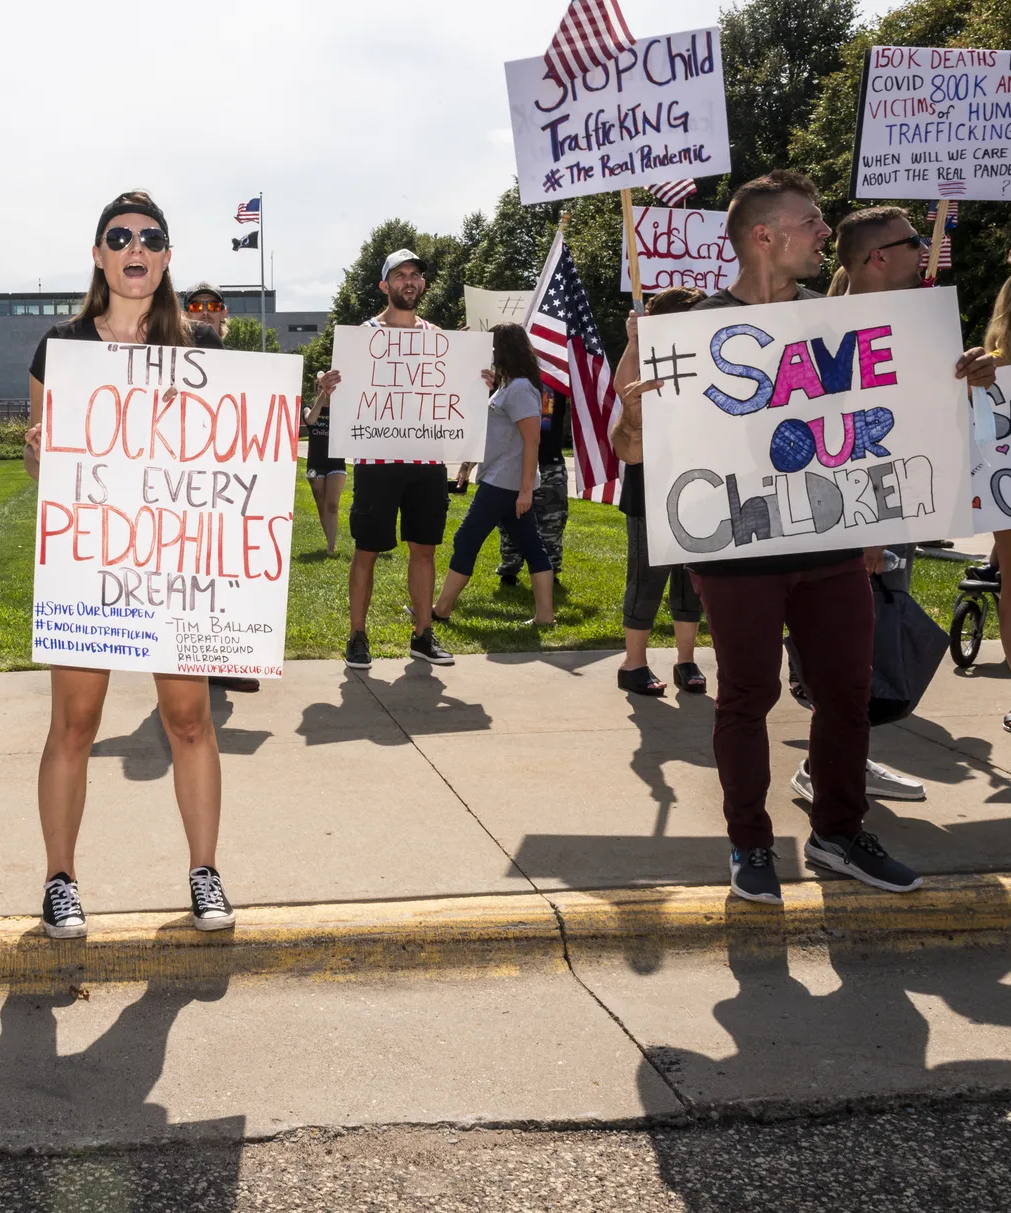 "THIS
LOCKDOWN
IS EVERY
PEDOPHILES'
DREAM."
#SAVEOURCHILDREN
#ENDCHILDTRAFFICKING
#CHILDLIVESMATTER
-TIM BALLARD
OPERATION
UNDERGROUND
RAILROAD
WWW.OURRESCUE.ORG
CHILD
LIVES
MATTER
#saveourchildren
#
STOP Child
TraffickING
#The Real Pandemic
KidsCan't
consent
#SAVE
OUR
ChiLDREN
150K DEATHS
COVID 800K
VICTIMS of
TRAFFICKING
WHEN WILL WE CARE
ABOUT THE REAL
?